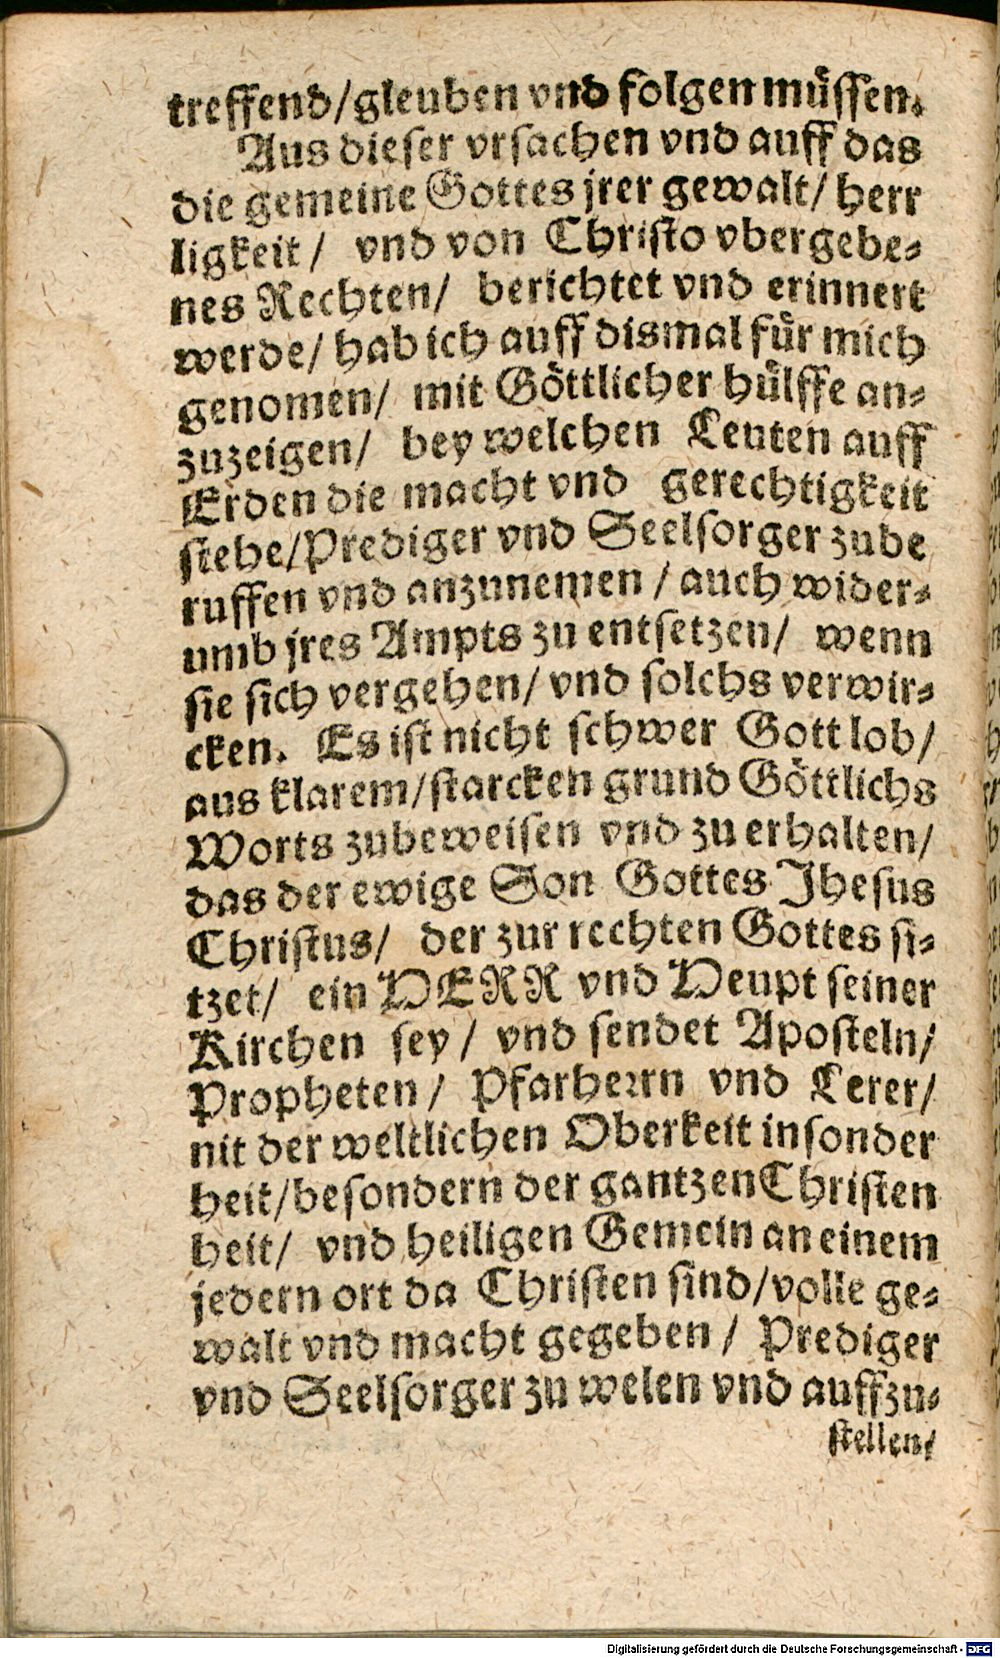 treffend/gleuben vnd folgen müssen.
Aus dieser vrsachen vnd auff das
die gemeine Gottes jrer gewalt/ herr
ligkeit/ vnd von Christo vbergebe-
nes Rechten/ berichtet vnd erinnert
werde/ hab ich auff dismal für mich
genomen/ mit Göttlicher hülffe an-
zuzeigen/ bey welchen Leuten auff
Erden die macht vnd gerechtigkeit
stehe/Prediger vnd Seelsorger zube
ruffen vnd anzunemen / auch wider-
umb jres Ampts zu entsetzen/ wenn
sie sich vergehen/ vnd solchs verwir-
cken. Es ist nicht schwer Gott lob/
aus klarem/starcken grund Göttlichs
Worts zubeweisen vnd zu erhalten/
das der ewige Son Gottes Jhesus
Christus/ der zur rechten Gottes si-
tzet/ ein HERR vnd Heupt seiner
Kirchen sey / vnd sendet Aposteln/
Propheten/ Pfarherrn vnd Lerer/
nit der weltlichen Oberkeit insonder
heit/besondern der gantzen Christen
heit/ vnd heiligen Gemein an einem
jedern ort da Christen sind/volle ge-
walt vnd macht gegeben / Prediger
vnd Seelsorger zu welen vnd auffzu-
stellen/
Digitalisierung gefördert durch die Deutsche Forschungsgemeinschaft - DFG